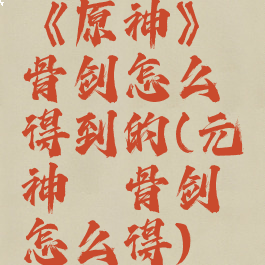 《原神》
骨剑怎么
得到的(元
神 骨剑
怎么得)